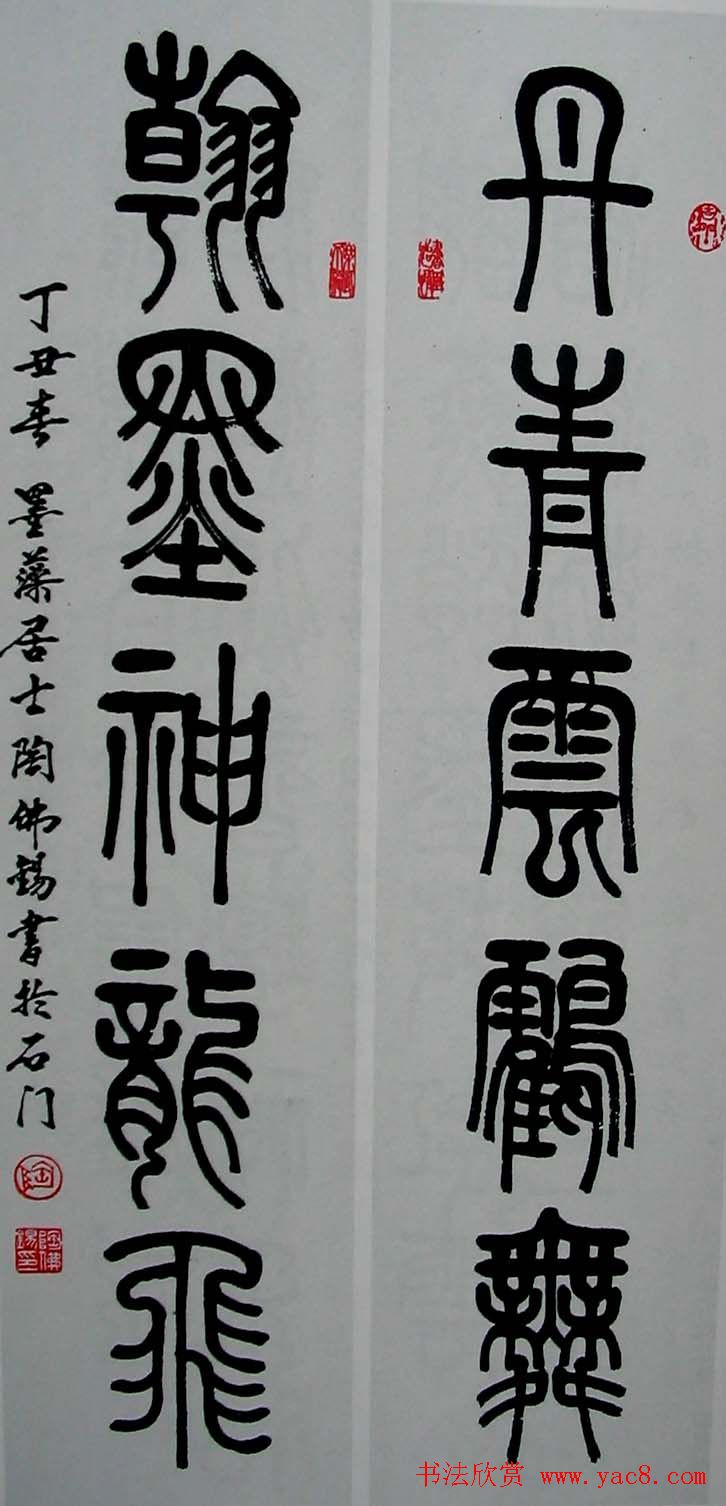 丹青雲鶴舞
翰墨神龍飛
丁丑春 墨藻居士陶佛錫書於石门
陶
陶佛錫印
书法欣赏 www.yac8.com